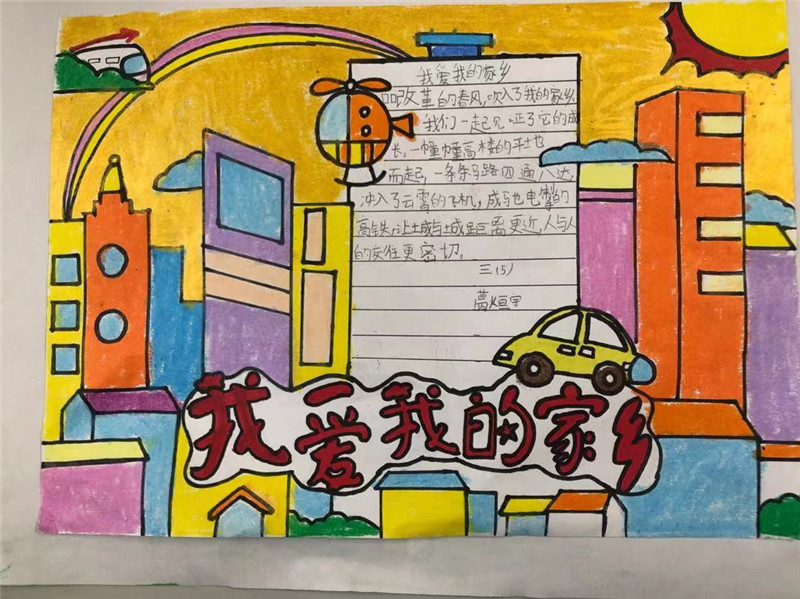 我爱我的家乡
改革的春风,吹入了我的家乡.
我们一起见证了它的成
长,一幢幢高楼的平地
而起,一条条马路四通八达,
冲入了云霄的飞机,成马也电掣的
高铁,让城与城距离更近,人与人
的交往更密切。
三(5)
葛烜宇
我爱我的家乡